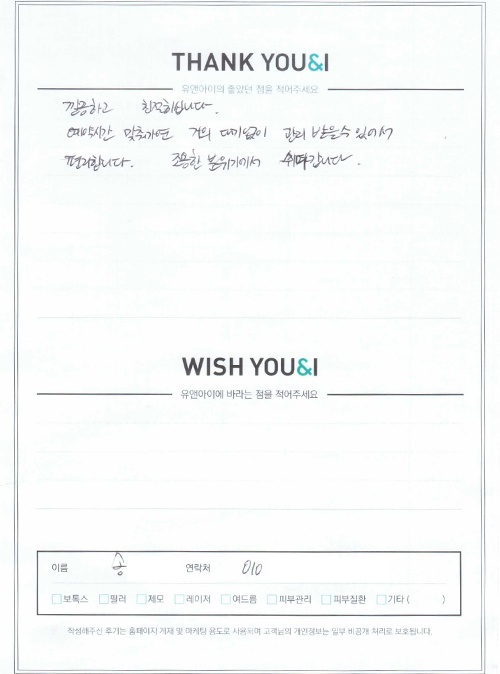 THANK YOU&I
유앤아이의 좋았던 점을 적어주세요
깔끔하고 친절하십니다.
예약시간 맞춰가면 거의 대기없이 관리 받을수 있어서
편리합니다. 조용한 분위기에서 쉬다갑니다.
WISH YOU&I
유앤아이에 바라는 점을 적어주세요
이름 송 연락처 010
보톡스 필러 제모 레이저 여드름 피부관리 피부질환 기타 ( )
작성해주신 후기는 홈페이지 게재 및 마케팅 용도로 사용되며 고객님의 개인정보는 일부 비공개 처리로 보호됩니다.